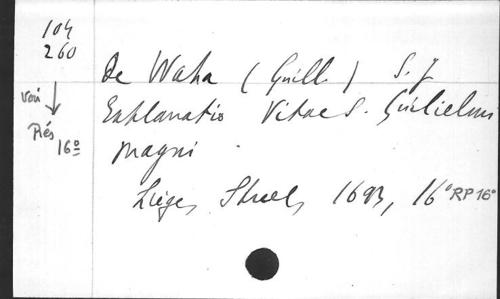 104
260
De Waha (Guill.) S. J
Explanatio Vitae S. Guilielmi
magni
Liège, Streel, 1693, 16° RP 16°
voir
Rés
16°